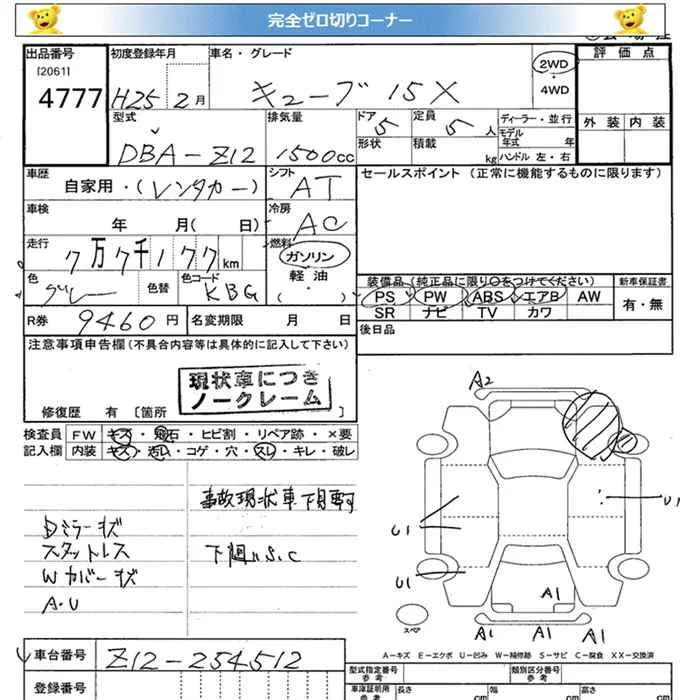 完全ゼロ切りコーナー
出品番号 初度登録年月 車名・グレード 2WD 評価点
[2061]
4777 H25 2月 キューブ 15X 4WD
型式 排気量 ドア 定員 ディーラー・並行 外装 内装
DBA-Z12 1500cc 5 5人 モデル年式 年
形状 積載 kg ハンドル 左・右
車歴 シフト セールスポイント (正常に機能するものに限ります)
自家用・(レンタカー) AT
車検 冷房
年 月( 日) AC
走行 燃料
7万7千177km ガソリン
色 色替 色コード 軽油
グレー KBG ( ・ )
装備品 (純正品に限り○をつけてください) 新車保証書
PS PW ABS エアB AW 有・無
SR ナビ TV カワ
R券 9460円 名変期限 月 日 後日品
注意事項申告欄 (不具合内容等は具体的に記入して下さい)
現状車につき
ノークレーム
修復歴 有 [箇所 ]
検査員 FW キズ・飛石・ヒビ割・リペア跡・×要
記入欄 内装 キズ・汚レ・コゲ・穴・スレ・キレ・破レ
A2
事故現状車
Dミラーキズ
スタットレス 下廻りS.C
Wカバーキズ
A・U
U1
U1
U1
A1
A1 A1 A1
スペア
A-キズ E-エクボ U-凹み W-補修跡 S-サビ C-腐食 XX-交換済
車台番号 Z12-254512
型式指定番号 類別区分番号
登録番号 車庫証明用 長さ cm 幅 cm 高さ cm